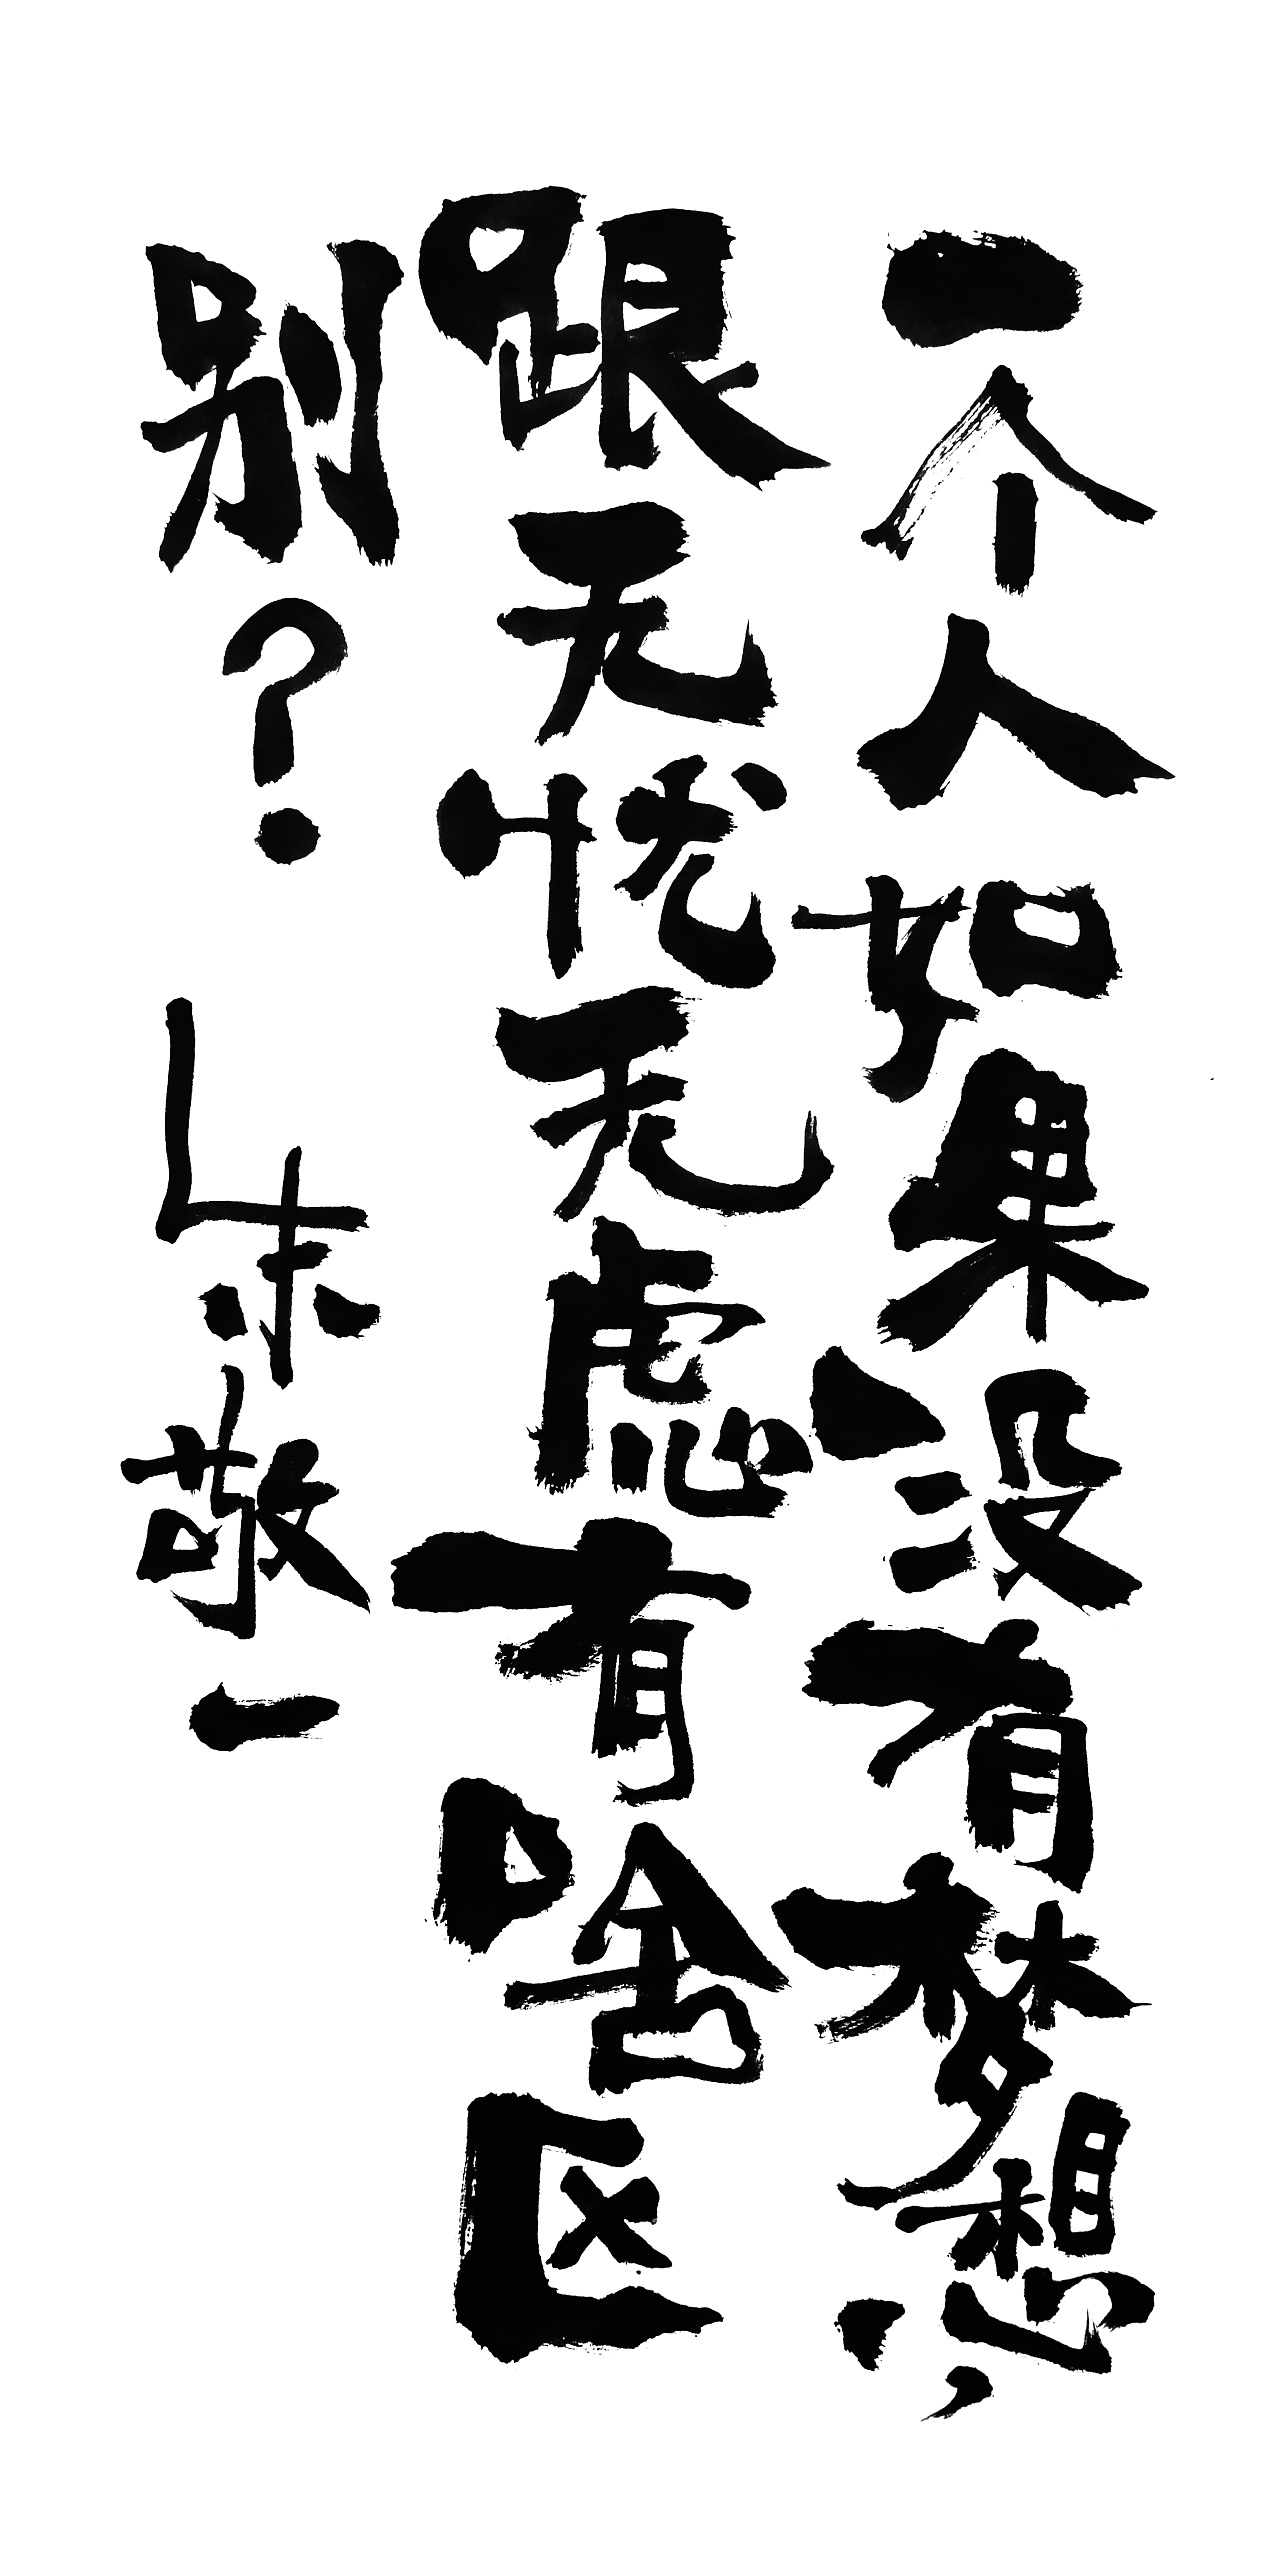 一个人如果没有梦想，
跟无忧无虑有啥区
别？ 朱敬一